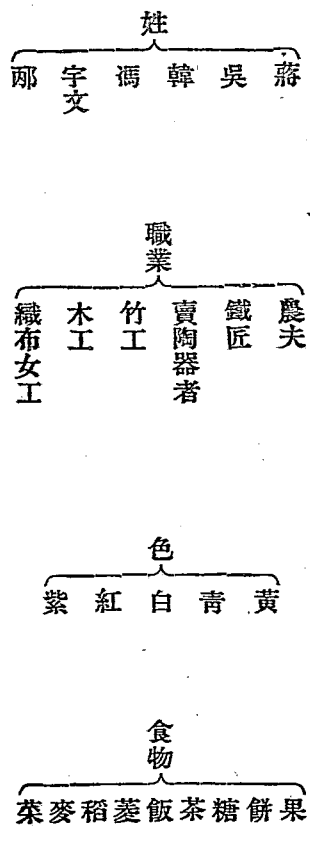 姓
蔣
吳
韓
馮
宇文
邴
職業
農夫
鐵匠
賣陶器者
竹工
木工
織布女工
色
黃
靑
白
紅
紫
食物
果
餅
糖
茶
飯
菱
稻
麥
菜